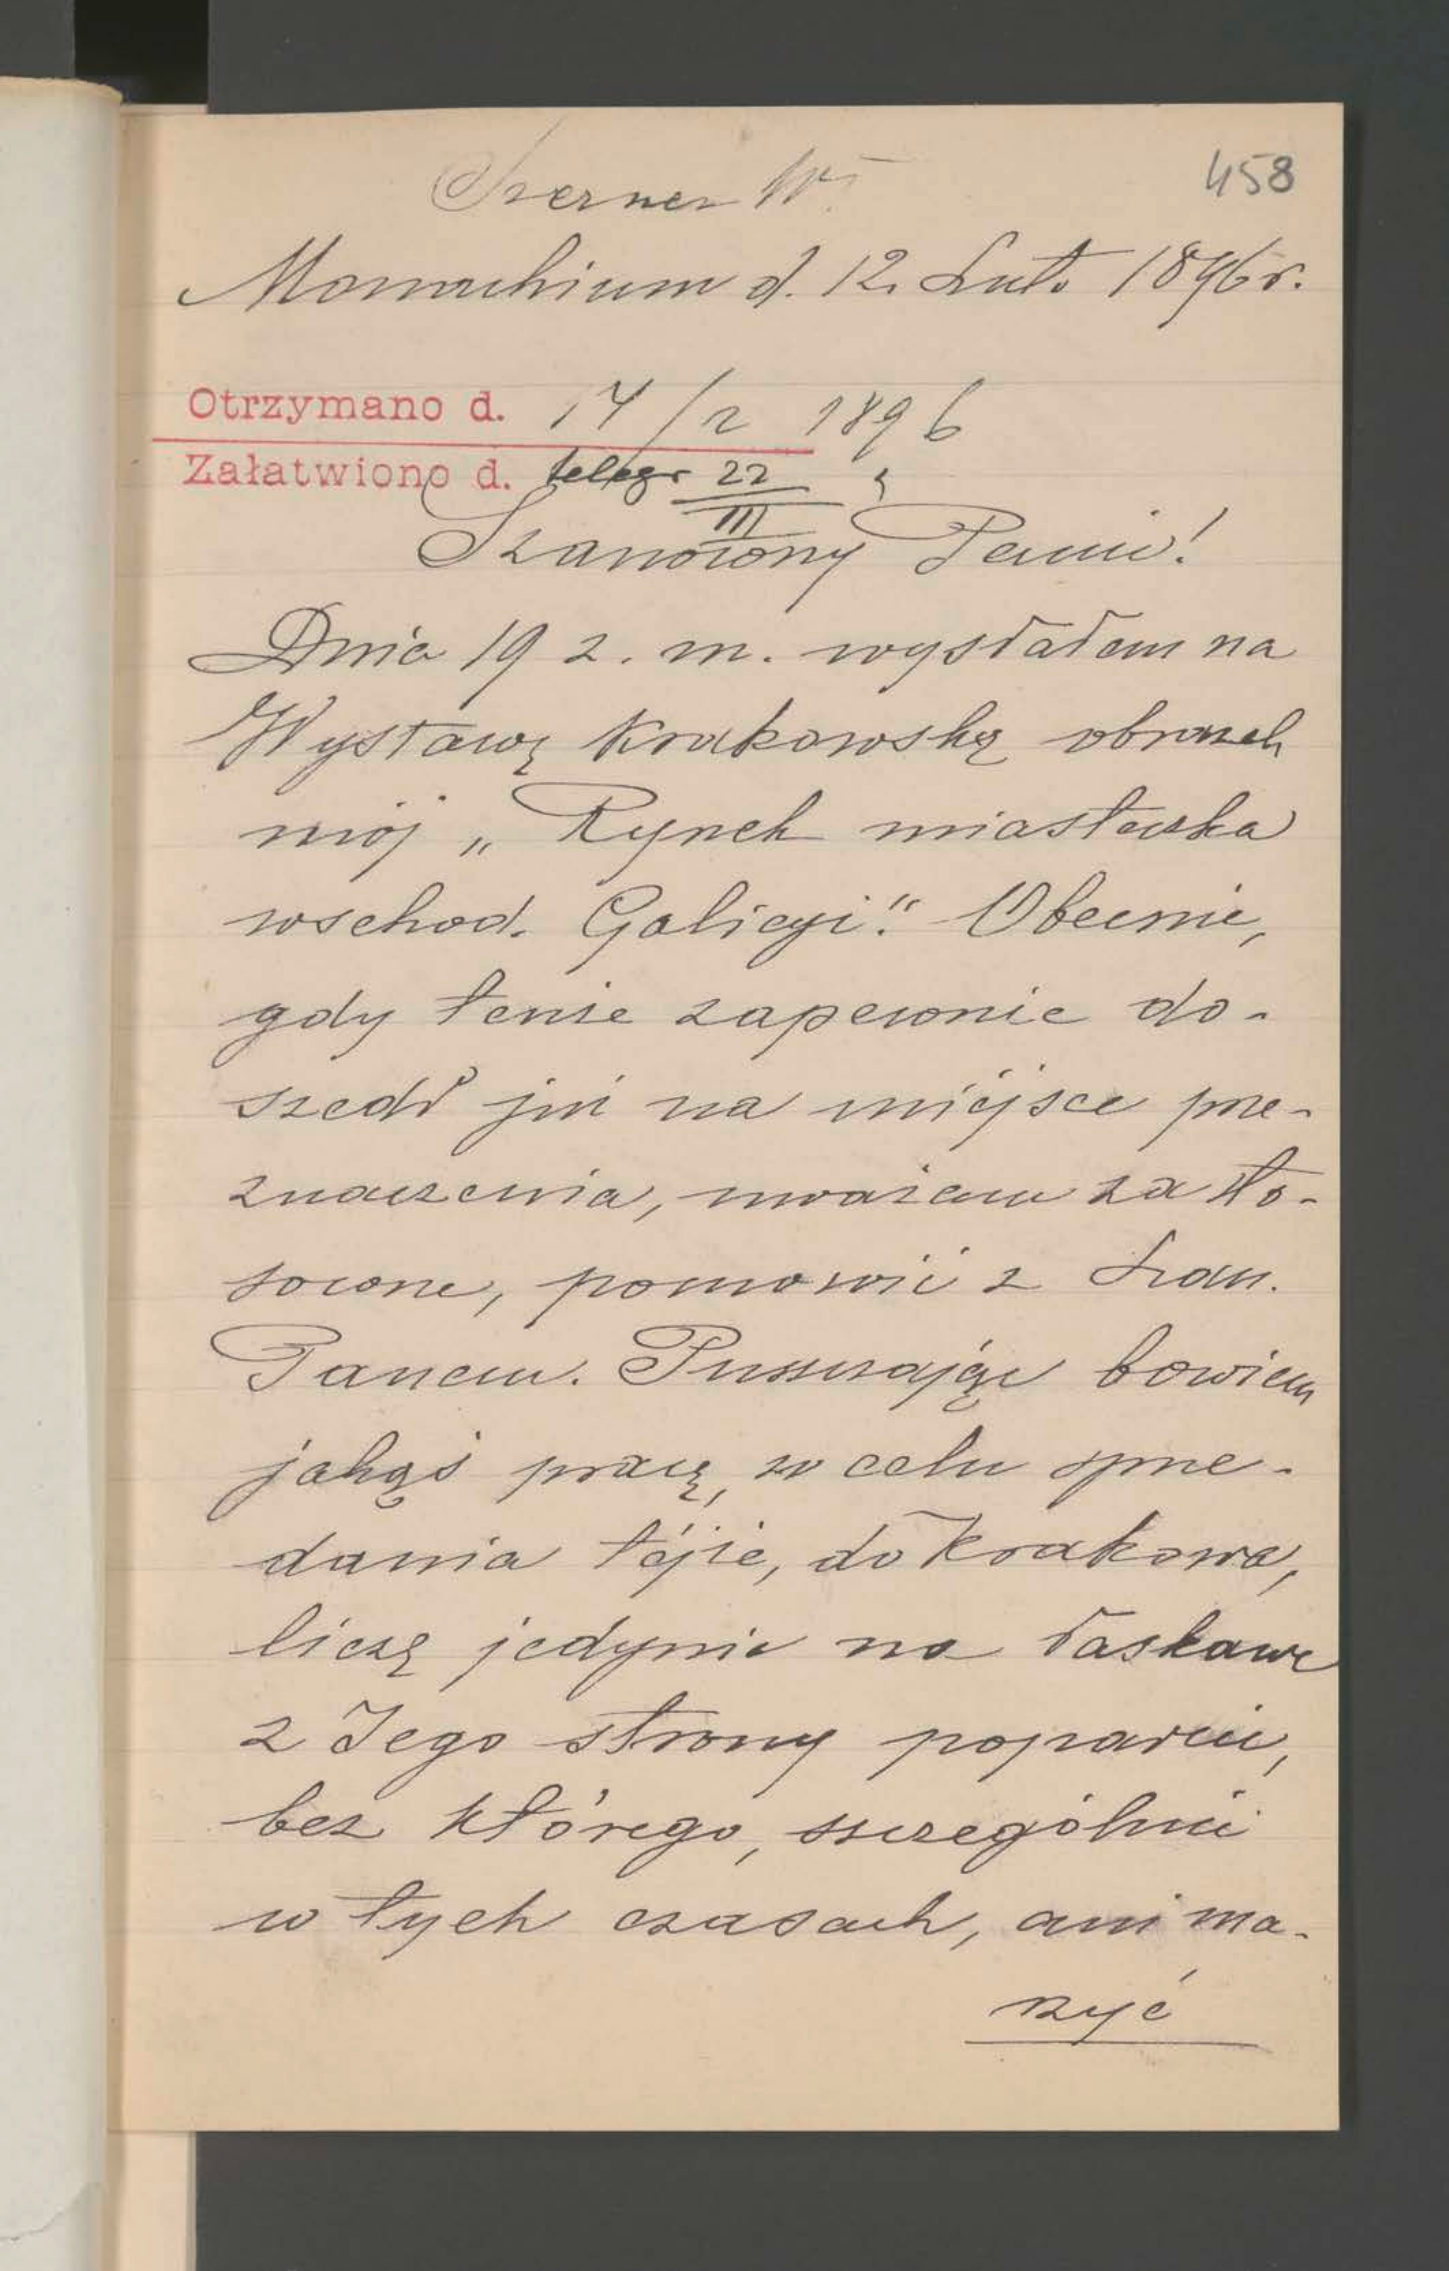 Szerner Wł.
458
Monachium d. 12. Lut. 1896 r.
Otrzymano d. 14/2 1896
Załatwiono d. telegr 22/III "
Szanowny Panie!
Dnia 19 z. m. wysłałem na
Wystawę Krakowską obrazek
mój „Rynek miasteczka
wschod. Galicyi." Obecnie,
gdy tenże zapewnie do-
szedł już na miéjsce prze-
znaczenia, uważam za sto-
sowne, pomówić z Szan.
Panem. Puszczając bowiem
jakąś pracę, w celu sprze-
dania téjże, do Krakowa,
liczę jedynie na łaskawe
z Jego strony poparcie,
bez którego, szczególnie
w tych czasach, ani ma-
rzyć